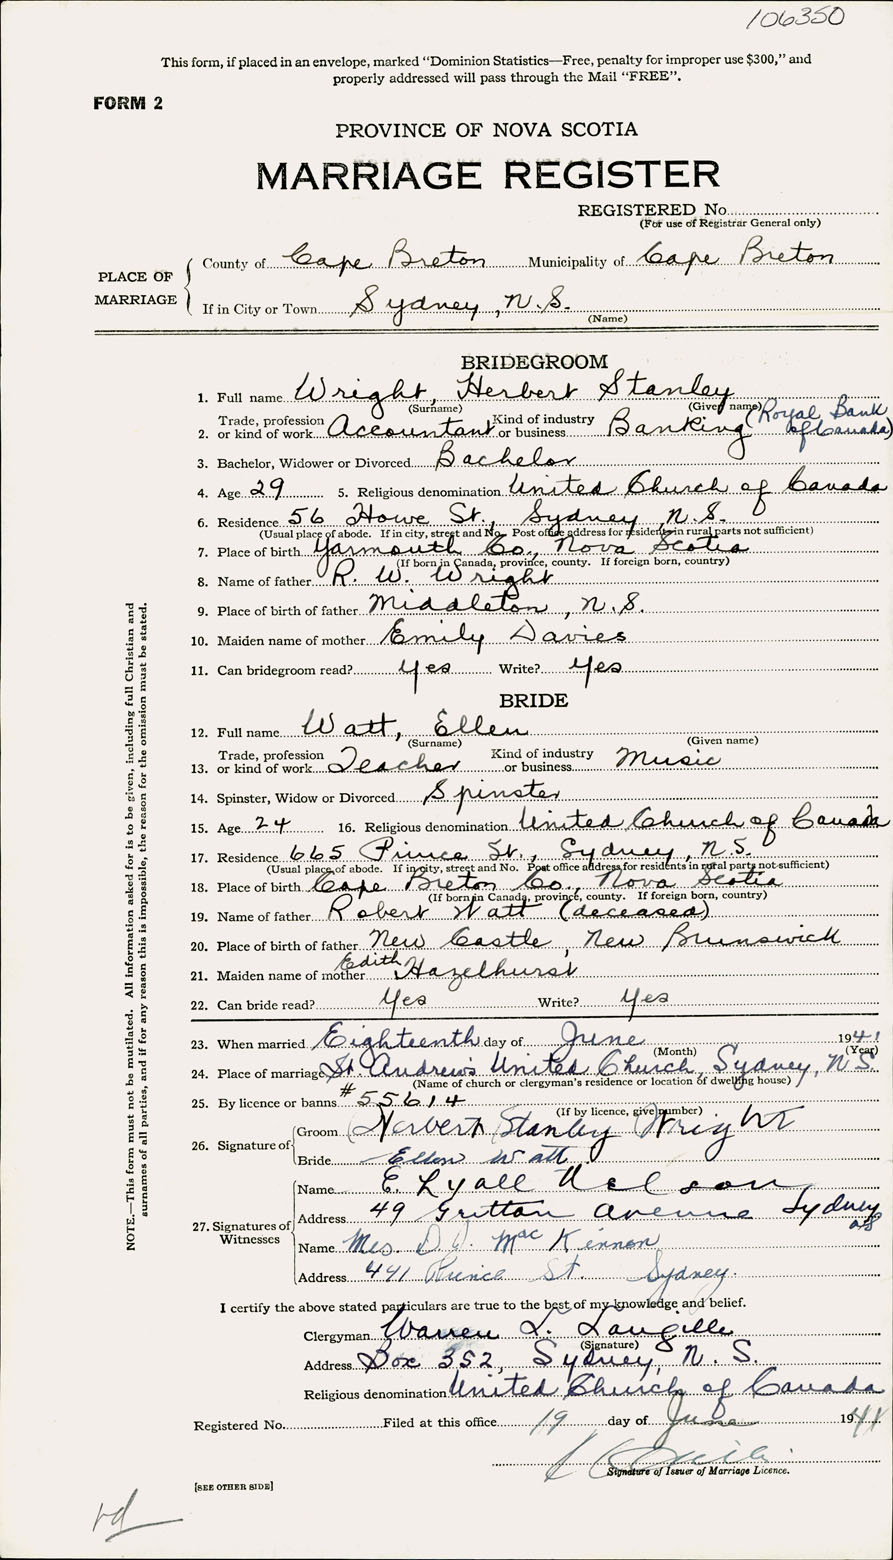 106350
This form, if placed in an envelope, marked “Dominion Statistics—Free, penalty for improper use $300,” and
properly addressed will pass through the Mail “FREE”.
FORM 2
PROVINCE OF NOVA SCOTIA
MARRIAGE REGISTER
REGISTERED No.
(For use of Registrar General only)
PLACE OF MARRIAGE
County of Cape Breton Municipality of Cape Breton
If in City or Town Sydney, N.S.
(Name)
BRIDEGROOM
1. Full name Wright, Herbert Stanley
(Surname) (Given name)
2. Trade, profession or kind of work Accountant Kind of industry or business Banking (Royal Bank of Canada)
3. Bachelor, Widower or Divorced Bachelor
4. Age 29 5. Religious denomination United Church of Canada
6. Residence 56 Howe St., Sydney N.S.
(Usual place of abode. If in city, street and No. Post office address for residents in rural parts not sufficient)
7. Place of birth Yarmouth Co., Nova Scotia
(If born in Canada, province, county. If foreign born, country)
8. Name of father R. W. Wright
9. Place of birth of father Middleton, N.S.
10. Maiden name of mother Emily Davies
11. Can bridegroom read? Yes Write? Yes
BRIDE
12. Full name Watt, Ellen
(Surname) (Given name)
13. Trade, profession or kind of work Teacher Kind of industry or business Music
14. Spinster, Widow or Divorced Spinster
15. Age 24 16. Religious denomination United Church of Canada
17. Residence 665 Prince St., Sydney, N.S.
(Usual place of abode. If in city, street and No. Post office address for residents in rural parts not sufficient)
18. Place of birth Cape Breton Co., Nova Scotia
(If born in Canada, province, county. If foreign born, country)
19. Name of father Robert Watt (deceased)
20. Place of birth of father New Castle, New Brunswick
21. Maiden name of mother Edith Hazelhurst
22. Can bride read? Yes Write? Yes
23. When married Eighteenth day of June 1941
(Month) (Year)
24. Place of marriage St. Andrew's United Church, Sydney, N.S.
(Name of church or clergyman's residence or location of dwelling house)
25. By licence or banns #55614
(If by licence, give number)
26. Signature of
Groom Herbert Stanley Wright
Bride Ellen Watt
27. Signatures of Witnesses
Name E. Lyall Nelson
Address 49 Avenue Sydney NS
Name Mrs. D. MacKinnon
Address 491 Prince St. Sydney.
I certify the above stated particulars are true to the best of my knowledge and belief.
Clergyman Warren L. Langille
(Signature)
Address Box 352, Sydney, N. S.
Religious denomination United Church of Canada
Registered No. Filed at this office 19 day of June 1941
Signature of Issuer of Marriage Licence.
[SEE OTHER SIDE]
NOTE.—This form must not be mutilated. All information asked for is to be given, including full Christian and
surnames of all parties, and if for any reason this is impossible, the reason for the omission must be stated.